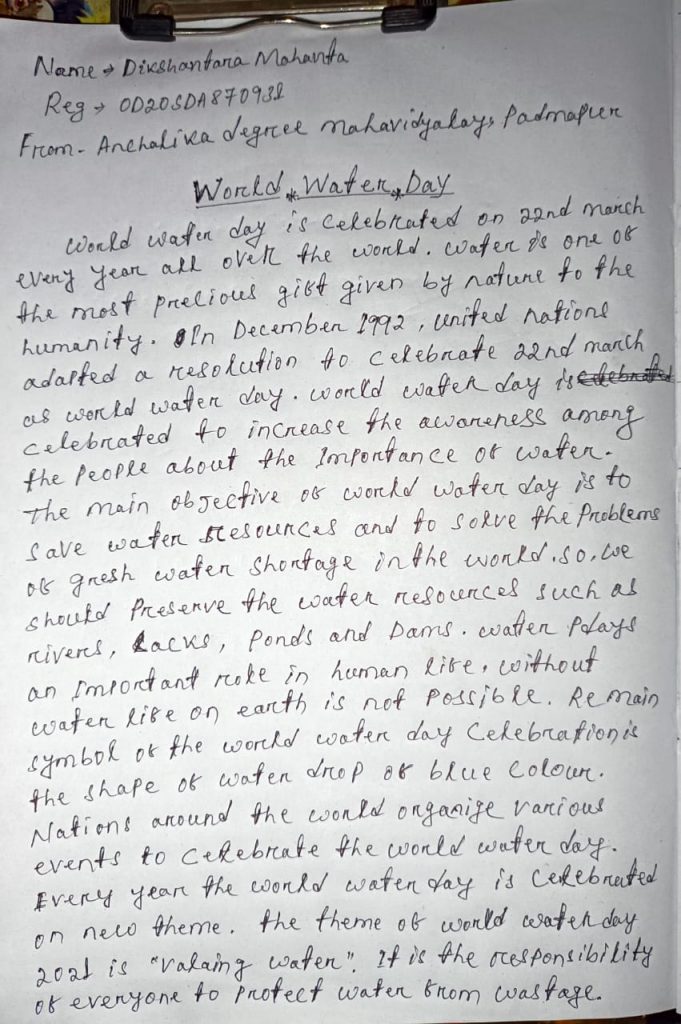 Name → Dikshantara Mahanta
Reg → OD20SDA870931
From - Anchalika degree mahavidyalay, Padmapur
World * Water * Day
World water day is celebrated on 22nd march
every year all over the world. water is one of
the most precious gift given by nature to the
humanity. In December 1992, united nations
adapted a resolution to celebrate 22nd march
as world water day. world water day is celebrated
celebrated to increase the awareness among
the people about the Importance of water.
The main objective of world water day is to
save water resources and to solve the problems
of gresh water shortage in the world. so, we
should preserve the water resources such as
rivers, Lacks, ponds and Dams. water plays
an Important role in human life, without
water life on earth is not possible. Remain
symbol of the world water day Celebration is
the shape of water drop of blue colour.
Nations around the world organige various
events to celebrate the world water day.
Every year the world water day is celebrated
on new theme. the theme of world water day
2021 is "valaing water". It is the responsibility
of everyone to protect water from wastage.